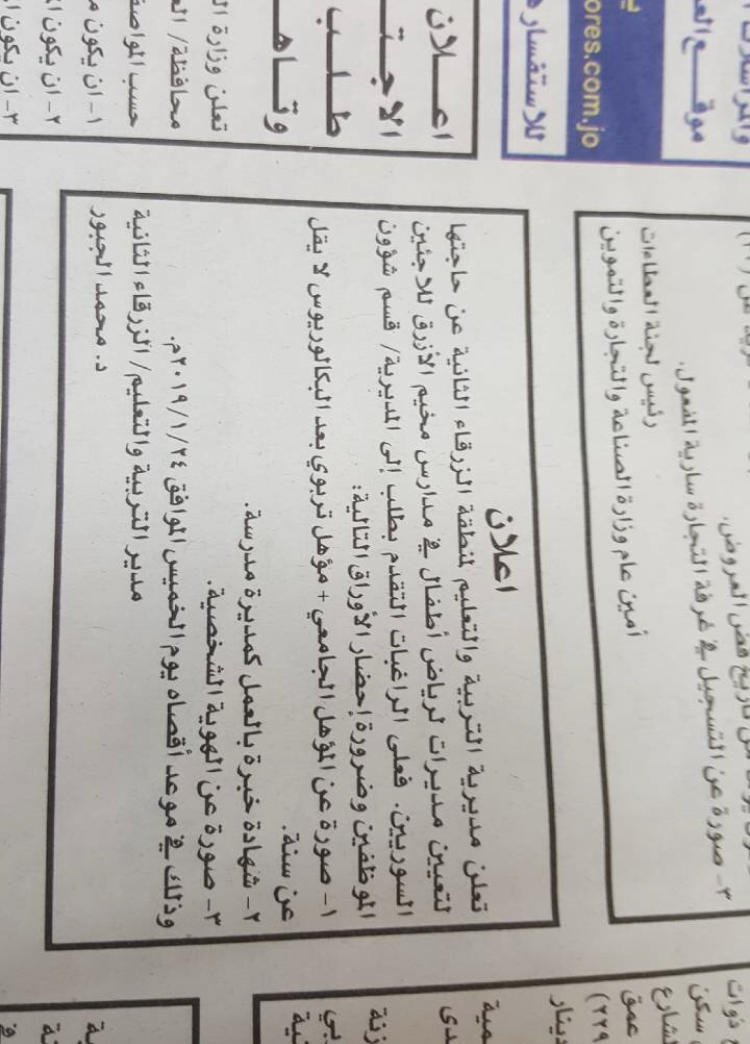 اعلان
تعلن مديرية التربية والتعليم لمنطقة الزرقاء الثانية عن حاجتها
لتعيين مديرات لرياض أطفال في مدارس مخيم الأزرق للاجئين
السوريين. فعلى الراغبات التقدم بطلب إلى المديرية/ قسم شؤون
الموظفين وضرورة إحضار الأوراق التالية:
١- صورة عن المؤهل الجامعي + مؤهل تربوي بعد البكالوريوس لا يقل
عن سنة.
٢- شهادة خبرة بالعمل كمديرة مدرسة.
٣- صورة عن الهوية الشخصية.
وذلك في موعد أقصاه يوم الخميس الموافق ٢٠١٩/١/٢٤م.
مدير التربية والتعليم/ الزرقاء الثانية
د. محمد الجبور
٣- صورة عن التسجيل في غرفة التجارة سارية المفعول.
رئيس لجنة العطاءات
أمين عام وزارة الصناعة والتجارة والتموين
موقع
ores.com.jo
للاستفسار
اعلان
طلب
تعلن وزارة
محافظة/
حسب
١- ان يكون
٢- ان يكون
٣- ان يكون
ذوات
سكن
عمق
(٢٢٩
دينار